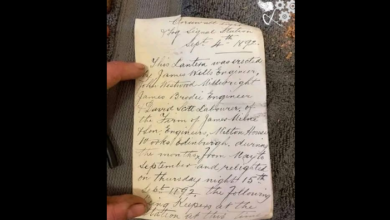 Signal Station
Sept 4th 1892
This Lantern was erected
by James Wells Engineer,
John Westwood Millwright
James Brodie Engineer
David Scott Labourer, of
the Firm of James Milne
Son, Engineers, Milton House
Works, Edinburgh, during
the months from May to
September and relighted
on Thursday night 15th
Sept 1892. the following
being Keepers at the
Station at this time